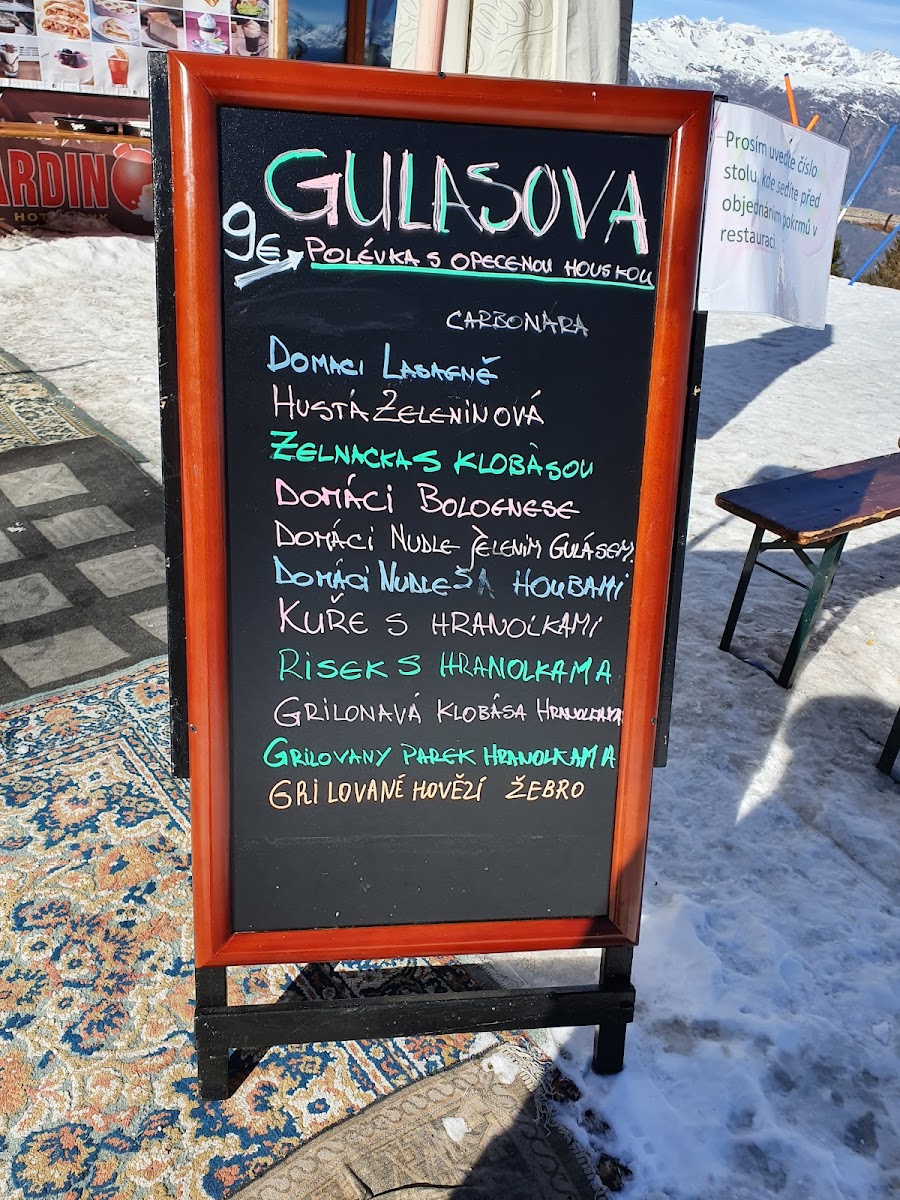 GULASOVA
9€ POLÉVKA S OPECENOU HOUSKOU
CARBONARA
DOMACI LASAGNĚ
HUSTÁ ZELENINOVÁ
ZELNACKA S KLOBÀSOU
DOMÁCI BOLOGNESE
DOMÁCI NUDLE JELENIM GULÁSEM
DOMÁCI NUDLE SA HOUBAMI
KUŘE S HRANOLKAMI
RISEK S HRANOLKAMA
GRILONAVÁ KLOBÁSA HRANOLKAMA
GRILOVANY PAREK HRANOLKAMA
GRILOVANÉ HOVĚZÍ ŽEBRO
Prosím uveďte číslo
stolu, kde sedíte před
objednáním pokrmů v
restauraci.
ARDIN